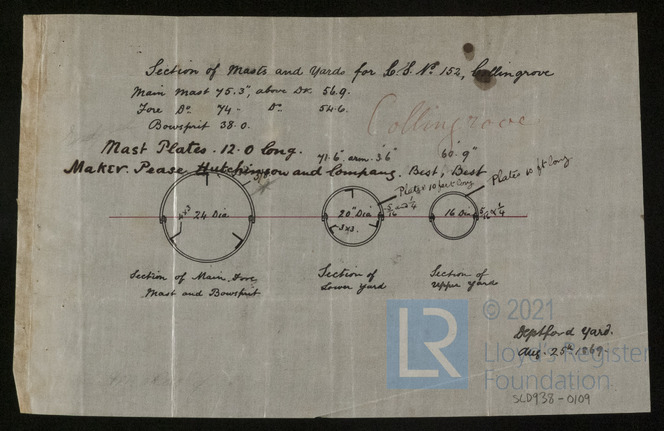 Section of Masts and Yards for S.S. No. 152, Collingrove
Main Mast 75.3", above Dk. 56.9.
Fore Do. 74 - Do. 54.6.
Bowsprit 38.0.
Collingrove
Mast Plates. 12.0 long.
71.6" arm. 3'6"
60.9"
Maker. Pease Hutchinson and Company. Best, Best
Plates 10 feet long
Plates 10 ft long
24 Dia
20" Dia
5/16 and 1/4
16 Dia
5/16 & 1/4
3x3.
Section of Main, Fore,
Mast and Bowsprit
Section of
Lower Yard
Section of
Upper Yard
Deptford Yard.
Aug. 25th 1869.
LR
© 2021
Lloyd's Register
Foundation.
SLD938-0109